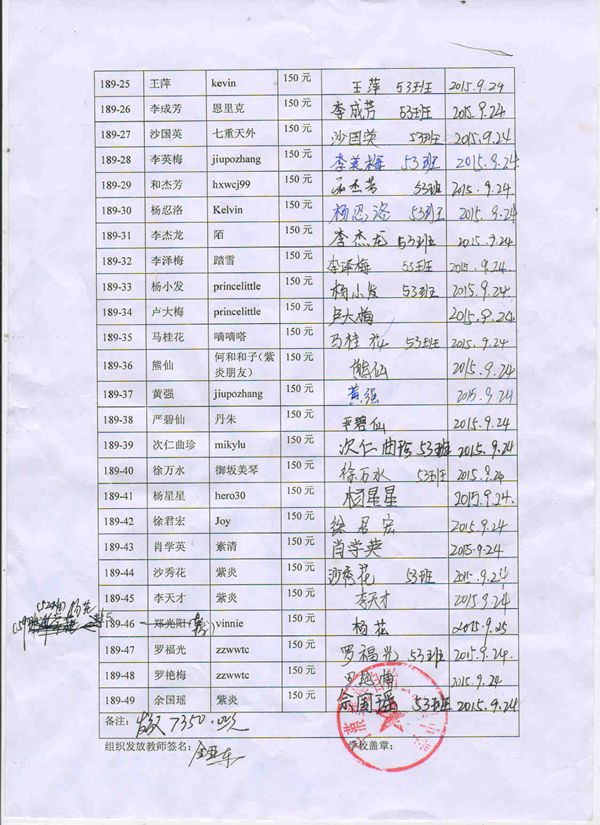 189-25 王萍 kevin 150元 王萍 53班 2015.9.24
189-26 李成芳 恩里克 150元 李成芳 53班 2015.9.24
189-27 沙国英 七重天外 150元 沙国英 53班 2015.9.24
189-28 李英梅 jiupozhang 150元 李英梅 53班 2015.9.24
189-29 和杰芳 hxwcj99 150元 和杰芳 53班 2015.9.24
189-30 杨忍洛 Kelvin 150元 杨忍洛 53班 2015.9.24
189-31 李杰龙 陌 150元 李杰龙 53班 2015.9.24
189-32 李泽梅 踏雪 150元 李泽梅 53班 2015.9.24
189-33 杨小发 princelittle 150元 杨小发 53班 2015.9.24
189-34 卢大梅 princelittle 150元 卢大梅 2015.9.24
189-35 马桂花 嘀嘀嗒 150元 马桂花 53班 2015.9.24
189-36 熊仙 何和和子(紫炎朋友) 150元 熊仙 2015.9.24
189-37 黄强 jiupozhang 150元 黄强 2015.9.24
189-38 严碧仙 丹朱 150元 严碧仙 2015.9.24
189-39 次仁曲珍 mikylu 150元 次仁曲珍 53班 2015.9.24
189-40 徐万水 御坂美琴 150元 徐万水 53班 2015.9.24
189-41 杨星星 hero30 150元 杨星星 2015.9.24
189-42 徐君宏 Joy 150元 徐君宏 2015.9.24
189-43 肖学英 素清 150元 肖学英 2015.9.24
189-44 沙秀花 紫炎 150元 沙秀花 53班 2015.9.24
189-45 李天才 紫炎 150元 李天才 2015.9.24
189-46 郑光阳 vinnie 150元 2015.9.25
189-47 罗福光 zzwwtc 150元 罗福光 53班 2015.9.24
189-48 罗艳梅 zzwwtc 150元 罗艳梅 2015.9.24
189-49 余国瑶 紫炎 150元 余国瑶 53班 2015.9.24
备注: 7350.
组织发放教师签名: 学校盖章: